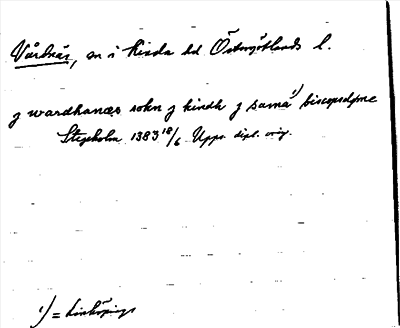 Vårdnäs, sn i Kinda hd Östergötlands l.
j wardhanæs sokn j kindh j sama¹⁾ biscopsdøme
Stegeholm 1383 18/6 Upps. dipl. orig.
¹⁾ = Linköpings